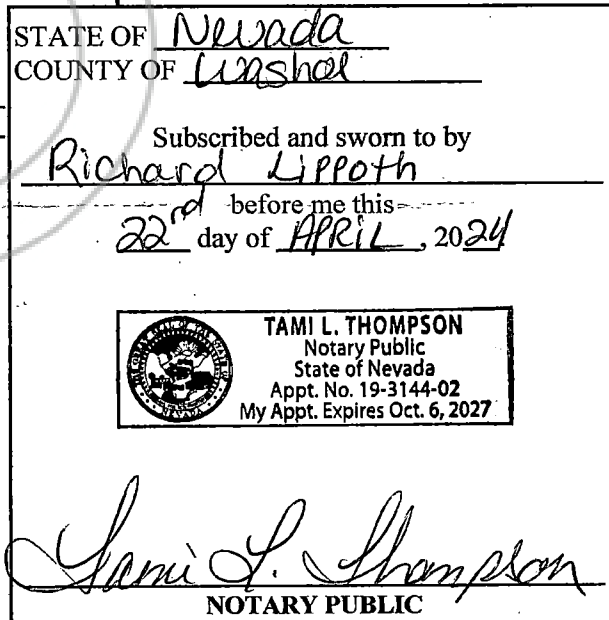 STATE OF Nevada
COUNTY OF Washoe
Subscribed and sworn to by
Richard Lippoth
before me this
22nd day of APRIL, 2024
THE GREAT SEAL OF THE STATE OF NEVADA
TAMI L. THOMPSON
Notary Public
State of Nevada
Appt. No. 19-3144-02
My Appt. Expires Oct. 6, 2027
Tami L. Thompson
NOTARY PUBLIC